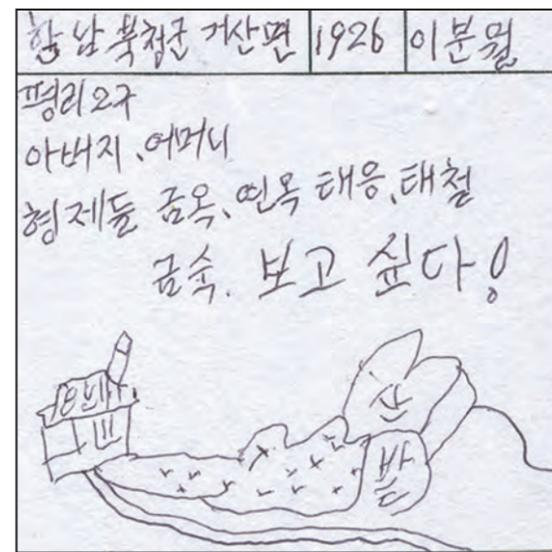 함남 북청군 거산면 1926 이분월
평리2구
아버지, 어머니
형제들 금옥, 연옥 태응, 태철
금숙. 보고 싶다!
산
밭